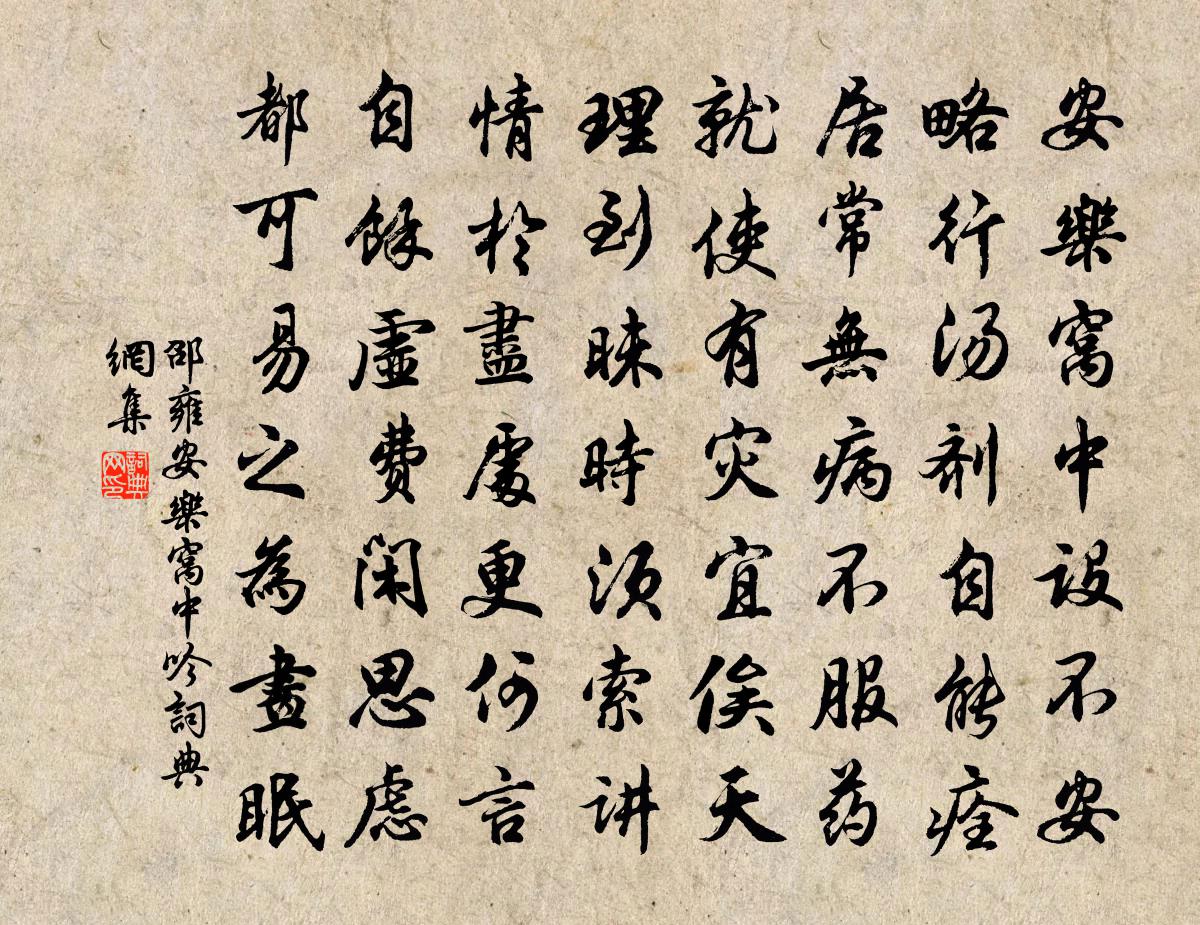 安樂窩中設不安
略行汤剂自能痊
居常無病不服药
就使有灾宜俟天
理到昧時須索讲
情於盡處更何言
自餘虛費闲思慮
都可易之為晝眠
邵雍安樂窩中吟詞典
網集
詞典網印